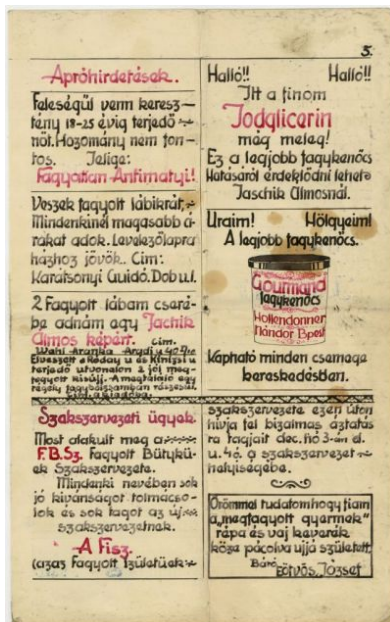 5.
Apróhirdetések.
Feleségül venn keresz-
tény 18-25 évig terjedő
nőt. Hozomány nem fon-
tos. Jelige:
Fagyatlan Antimatyi!
Veszek fagyott lábikrát,
Mindenkinél magasabb á-
rakat adok. Levelezőlapra
házhoz jövök. Cím:
Karátsonyi Guidó. Dob u.1.
2 Fagyott lábam cseré-
be adnám egy Jachik
Álmos képért. Cím.
Wahl Aranka
Elveszett a Ráday u és Kinizsi u
terjedő utvonalon 2 jól meg-
fagyott kisujj. A megtaláló egy
tégely fagybalzsamban részesül.
Szakszervezeti ügyek.
Most alakult meg a
F.B.Sz. Fagyott Bütykü-
ek Szakszervezete.
Mindenki nevében sok
jó kívánságot tolmácso-
lok és sok tagot az új
szakszervezetnek.
A Fisz.
(azaz Fagyott Izületüek
Halló!! Halló!!
Itt a finom
Jodglicerin
még meleg!
Ez a legjobb fagykenőcs
Hatásáról érdeklődni lehet
Jaschik Álmosnál.
Uraim! Hölgyeim!
A legjobb fagykenőcs.
Gourmand
fagykenőcs
Hollendonner
Nándor Bpest
Kapható minden csemege
kereskedésban.
szakszervezete ezen úton
hívja fel bizalmas áztatás
ra tagjait dec. hó 3-án d.
u. 4ó. a szakszervezet
helyiségébe.
Örömmel tudatom hogy fiam
a „megfagyott gyermek"
répa és vaj keverék
közé pácolva ujjá született.
Báró
Eötvös József